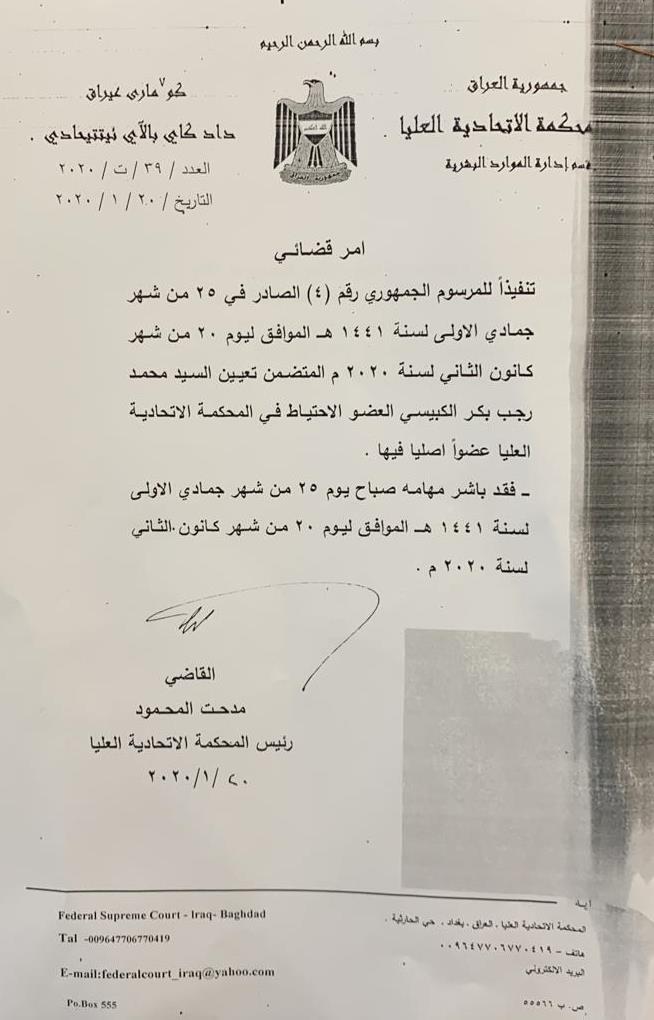 بسم الله الرحمن الرحيم
جمهورية العراق
محكمة الاتحادية العليا
قسم إدارة الموارد البشرية
كوٚمارى عيراق
داد كاي بالآي ئيتتيحادي .
العدد / ٣٩ / ت / ٢٠٢٠
التاريخ / ٢٠ / ١ / ٢٠٢٠
الله اكبر
جمهورية العراق
امر قضائي
تنفيذاً للمرسوم الجمهوري رقم (٤) الصادر في ٢٥ من شهر
جمادي الاولى لسنة ١٤٤١ هـ الموافق ليوم ٢٠ من شهر
كانون الثاني لسنة ٢٠٢٠ م المتضمن تعيين السيد محمد
رجب بكر الكبيسي العضو الاحتياط في المحكمة الاتحادية
العليا عضواً اصليا فيها .
ـ فقد باشر مهامه صباح يوم ٢٥ من شهر جمادي الاولى
لسنة ١٤٤١ هـ الموافق ليوم ٢٠ من شهر كانون الثاني
لسنة ٢٠٢٠ م .
القاضي
مدحت المحمود
رئيس المحكمة الاتحادية العليا
٢٠/١/٢٠٢٠
Federal Supreme Court - Iraq- Baghdad
Tal -009647706770419
E-mail:federalcourt_iraq@yahoo.com
Po.Box 555
المحكمة الاتحادية العليا . العراق . بغداد . حي الحارثية .
هاتف – ٠٠٩٦٤٧٧٠٦٧٧٠٤١٩
البريد الالكتروني
ص. ب ٥٥٥٦٦